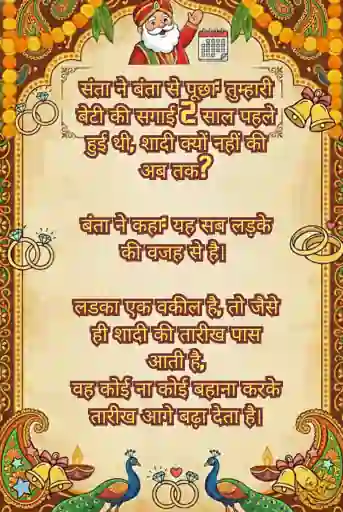 संता ने बंता से पूछा" तुम्हारी
बेटी की सगाई 2 साल पहले
हुई थी, शादी क्यों नहीं की
अब तक?
बंता ने कहा" यह सब लड़के
की वजह से है।
लडका एक वकील है, तो जैसे
ही शादी की तारीख पास
आती है,
वह कोई ना कोई बहाना करके
तारीख आगे बढ़ा देता है।